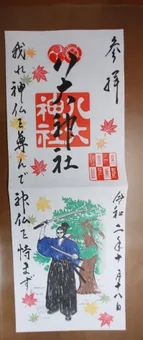 参拝
八大神社
八大
神社
我れ神仏を尊んで神仏を恃まず
令和二年十一月十八日